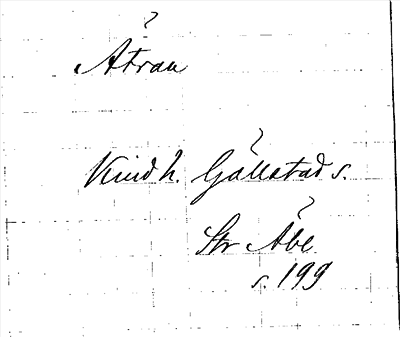 Ätran
Kind h. Gällstad s.
Str Åbe
s. 199